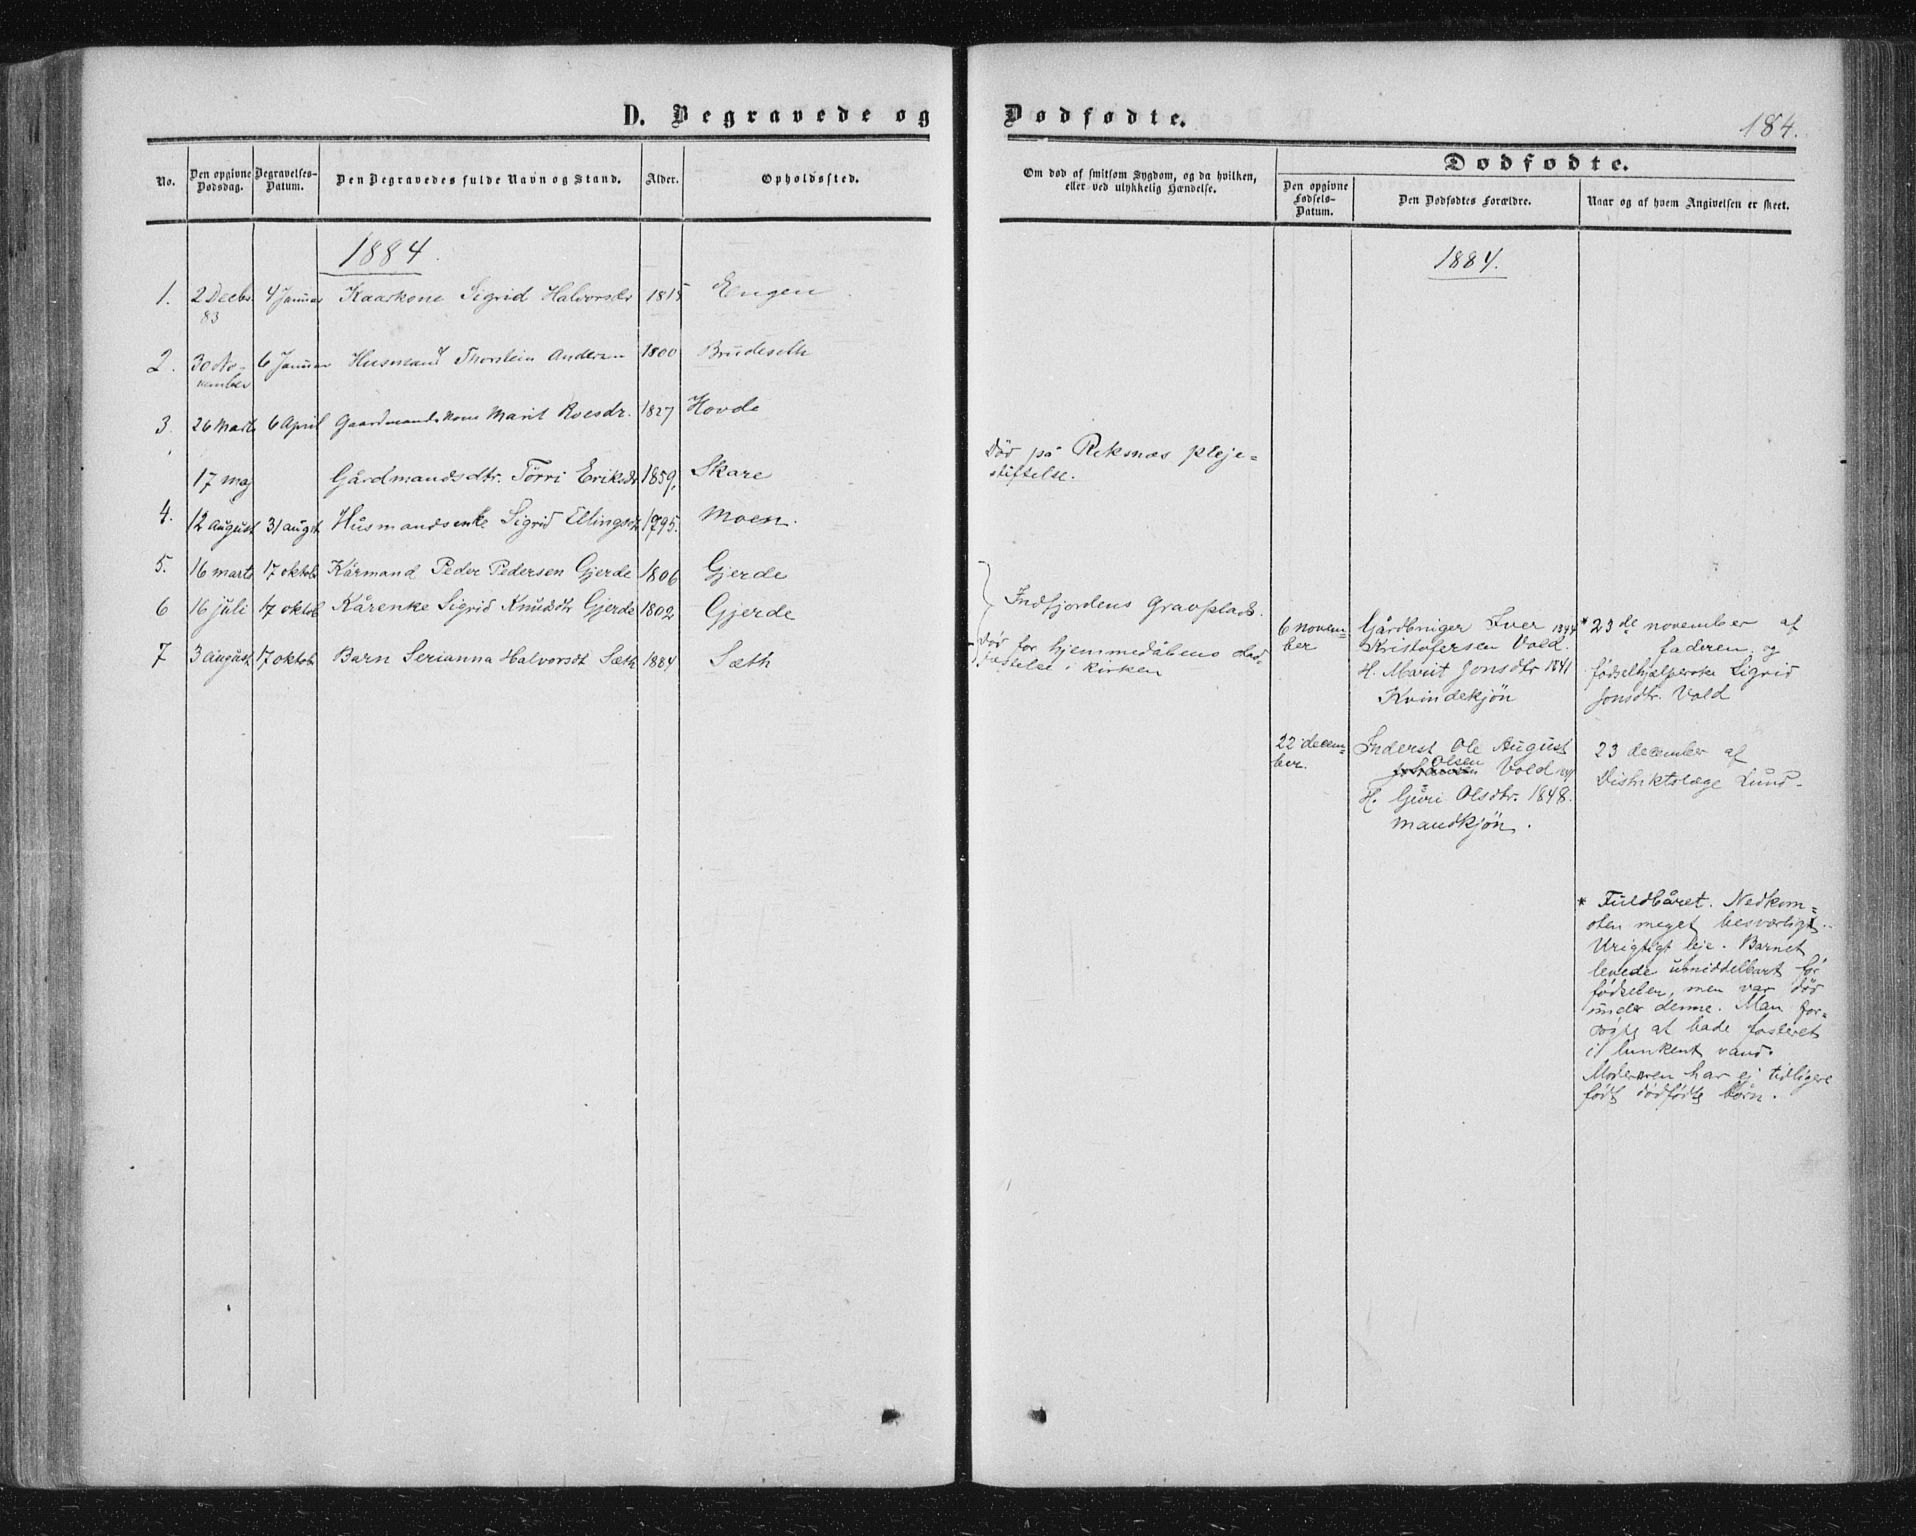 D. Begravede og Dødfødte.
184.
No.
Den opgivne Dødsdag.
Begravelses-Datum.
Den Begravedes fulde Navn og Stand.
Alder.
Opholdssted.
Om død af smitsom Sygdom, og da hvilken,
eller ved ulykkelig Hændelse.
Dødfødte.
Den opgivne Fødsels-Datum.
Den Dødfødtes Forældre.
Naar og af hvem Angivelsen er skeet.
1884.
1. 2 Decbr 83 4 Januar Kaarkone Sigrid Halvorsdr 1815 Engen
2. 30 No-vember 6 Januar Husmand Thorstein Andersen 1800 Brudeseth
3. 26 Marts 6 April Gaardmandskone Marit Roesdr. 1827 Hovde
17 maj Gårdmandsdtr. Tørri Eriksdr 1859. Skare
4. 12 august 31 augst Husmandsenke Sigrid Ellingsdtr 1795. Moen.
5. 16 marts 17 oktob Kårmand Peder Pedersen Gjerde 1806 Gjerde
6 16 juli 17 oktob Kårenke Sigrid Knudsdtr Gjerde 1802 Gjerde
7 3 august 17 oktob Barn Serianna Halvorsdt Sæth 1884 Sæth
Død på Reknæs pleje-
stiftelse.
Indfjordens Gravplads.
Død før hjemmedåbens stad-
fæstelse i kirken
1884.
6 novem-
ber
Gårdbruger Iver 1844
Kristofersen Vold.
H. Marit Jonsdtr 1841
Kvindekjøn
* 23de november af
faderen og
fødselhjælperske Sigrid
Jonsdtr. Vold
22 decem-
ber.
Inderst Ole August
Olsen Vold
H. Guri Olsdtr. 1848.
Mandkjøn.
23 december af
Distriktslæge Lund.
* Fuldbåret. Nedkom-
sten meget besværligt.
Urigtigt leje. Barnet
levede umiddelbart før
fødselen, men var død
under denne. Man for-
søgte at bade fosteret
i lunkent vand.
Moderen har ej tidligere
født dødfødte børn.